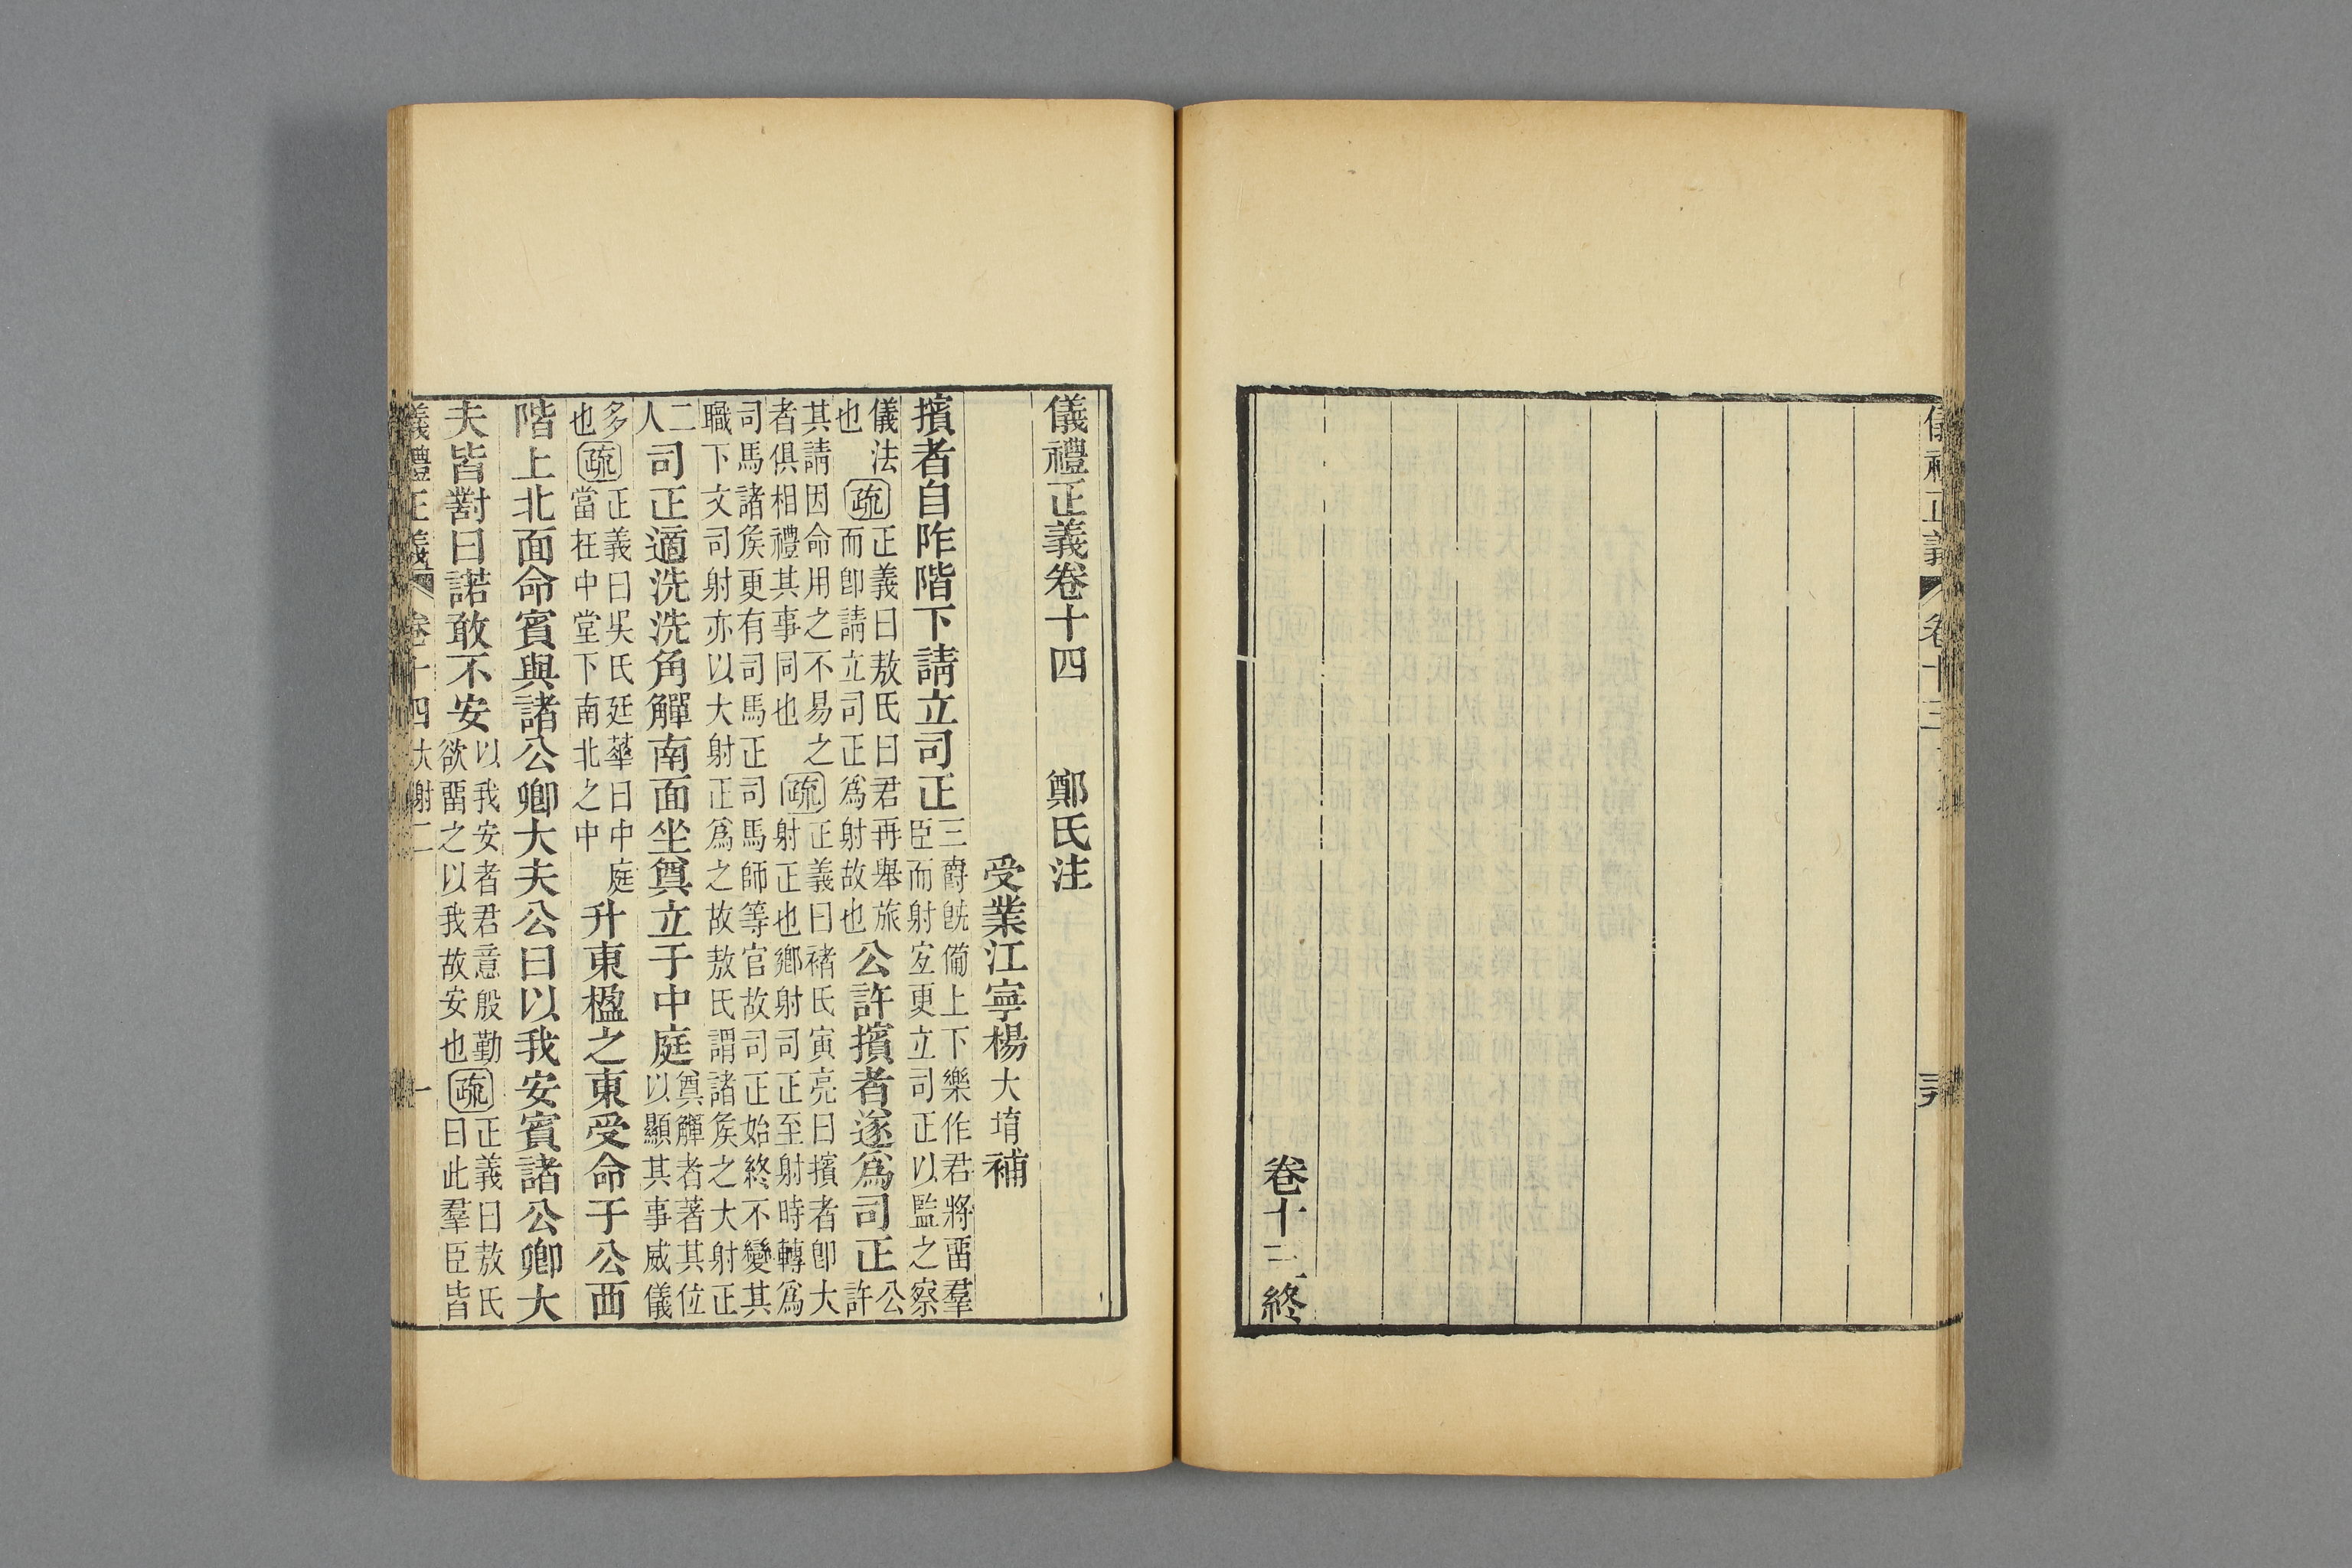 儀禮正義 卷十三
卷十三終
儀禮正義卷十四 鄭氏注
受業江寧楊大堉補
擯者自阼階下請立司正三爵旣備上下樂作君將畱羣臣而射宐更立司正以監之察
儀法也疏正義曰敖氏曰君再舉旅而卽請立司正爲射故也公許擯者遂爲司正公許
其請因命用之不易之者俱相禮其事同也疏正義曰褚氏寅亮曰擯者卽大射正也鄉射司正至射時轉爲
司馬諸矦更有司馬正司馬師等官故司正始終不變其職下文司射亦以大射正爲之故敖氏謂諸矦之大射正
二人司正適洗洗角觶南面坐奠立于中庭奠觶者著其位以顯其事威儀
多也疏正義曰吳氏廷華曰中庭當在中堂下南北之中升東楹之東受命于公西
階上北面命賓與諸公卿大夫公曰以我安賓諸公卿大
夫皆對曰諾敢不安以我安者君意殷勤欲畱之以我故安也疏正義曰敖氏曰此羣臣皆
儀禮正義 卷十四 大射二 一